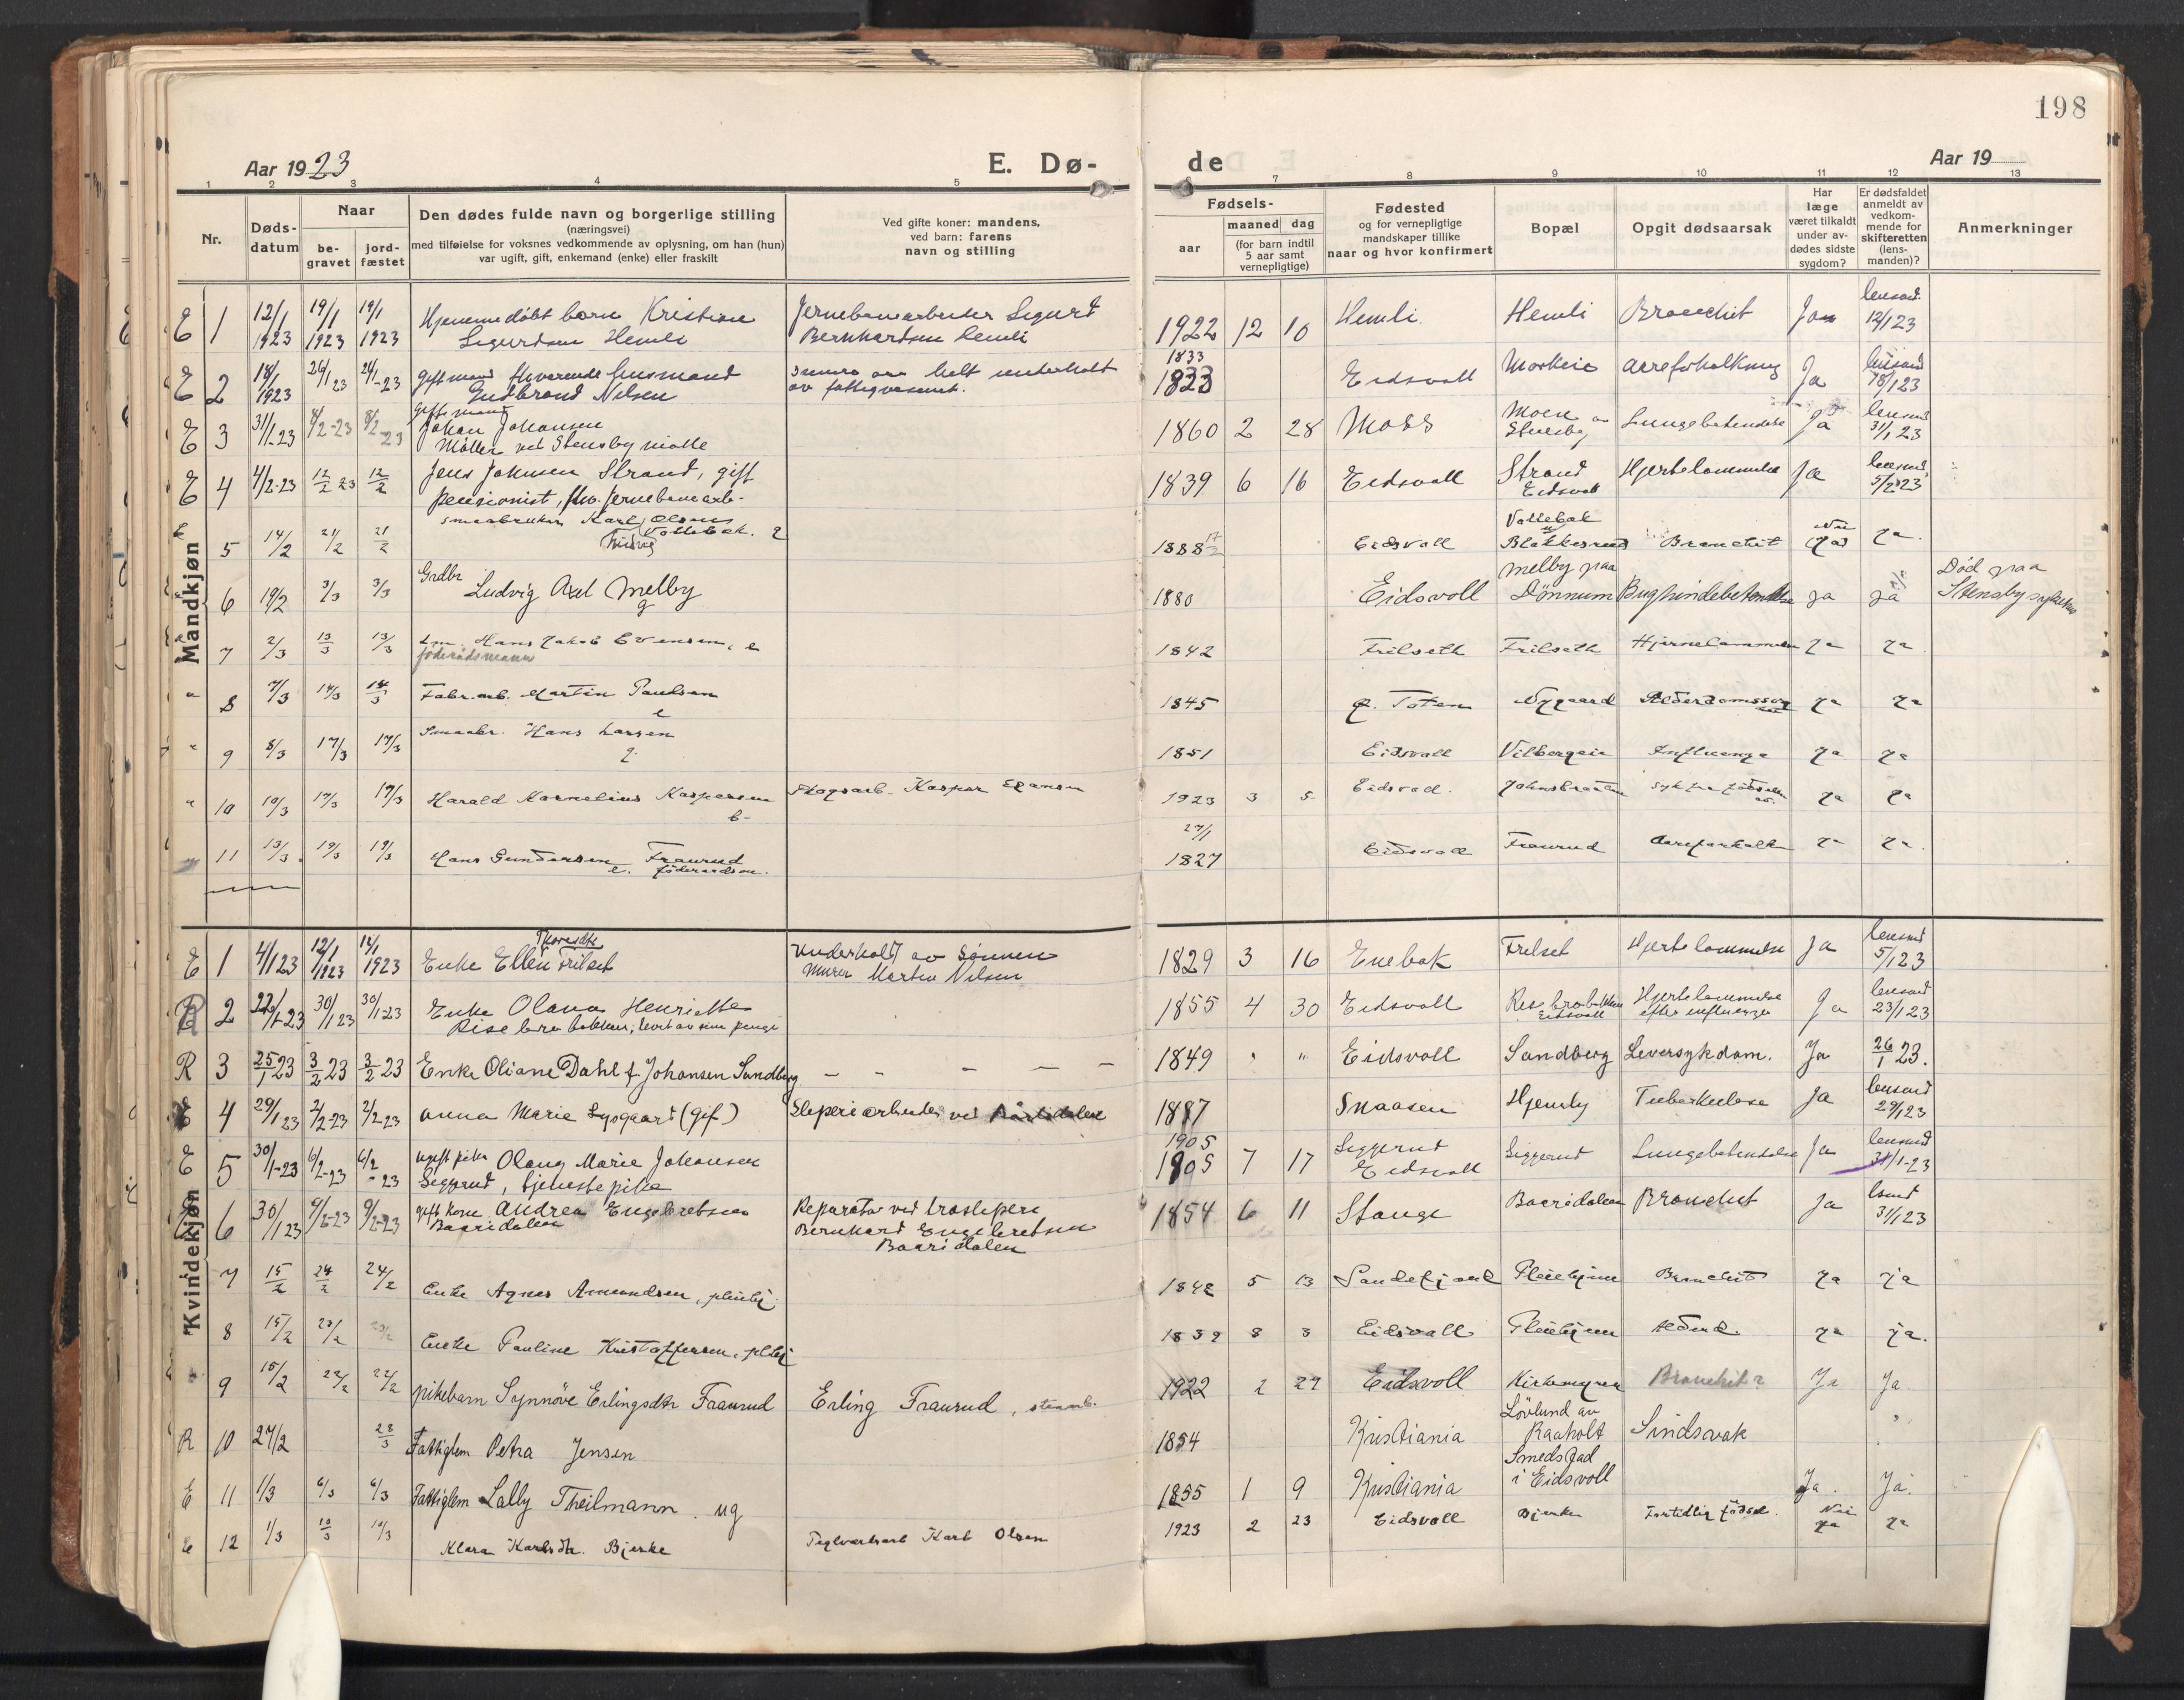 198
Aar 1923
E. Dø-
de
Aar 19
1 2 3 4 5 6 7 8 9 10 11 12 13
Nr.
Døds-
datum
Naar
be-
gravet
jord-
fæstet
Den dødes fulde navn og borgerlige stilling
(næringsvei)
med tilføielse for voksnes vedkommende av oplysning, om han (hun)
var ugift, gift, enkemand (enke) eller fraskilt
Ved gifte koner: mandens,
ved barn: farens
navn og stilling
Fødsels-
aar
maaned dag
(for barn indtil
5 aar samt
vernepligtige)
Fødested
og for vernepligtige
mandskaper tillike
naar og hvor konfirmert
Bopæl
Opgit dødsaarsak
Har
læge
været tilkaldt
under av-
dødes sidste
sygdom?
Er dødsfaldet
anmeldt av
vedkom-
mende for
skifteretten
(lens-
manden)?
Anmerkninger
Mandkjøn
E 1 12/1 1923 19/1 1923 19/1 1923 Hjemmedöbt barn Kristian
Sigurdsen Hemli
Jernebanearbeider Sigurd
Bernhardsen Hemli
1922 12 10 Hemli Hemli Bronchit Ja lensmd. 12/1 23
E 2 18/1 1923 26/1 23 gift mand fhværende husmand
Gudbrand Nilsen
helt underholdt
av fattigvæsenet.
1833
1823 Eidsvoll aareforkalkning Ja lensmd 18/1 23
E 3 31/1-23 8/2-23 8/2-23 Gift mand
Johan Johansen
Möller ved Stensby mölle
1860 2 28 Moss Moen av
Stensby Lungebetendelse Ja lensmd 31/1 23
E 4 4/2-23 12/2 23 12/2 Jens Johnsen Strand, gift
pensionist, fhv. jernebanearb.
1839 6 16 Eidsvoll Strand
Eidsvoll Hjertelammelse Ja lensmd 5/2 23
E 5 14/2 21/2 21/2 smaabruker Karl Olsen
Vollebæk. g
1888 17/2 Eidsvoll Vollebæk
u/
Blakkesrud Bronchit Nei
ja ja.
6 19/2 3/3 3/3 Grdbr
Ludvig Axel Melby
g
1880 Eidsvoll Melby paa
Dönnum Bughindebetendelse ja ja Död paa
Stensby sykehus
7 2/3 13/3 13/3 Em. Hans Jakob Evensen, e
föderådsmann
1842 Frilseth Frilseth Hjernelammelse ja ja
" 8 7/3 14/3 14/3 Fabr.arb. Martin Paulsen
e
1845 Ø. Toten Nygaard Alderdomssvag ja ja
" 9 8/3 17/3 17/3 Smaabr. Hans Larsen
g.
1851 Eidsvoll Vilbergeie Influenza ja ja
" 10 10/3 17/3 17/3 Harald Kornelius Kaspersen
b-
Skogsarb. Kaspar
1923 3 5 Eidsvoll. Johnsbraaten syk fra födselen
av. ja ja
11 13/3 19/3 19/3 Hans Gundersen Fraurud
e. föderaadsm.
27/1
1827 Eidsvoll Fraurud Aareforkalk ja ja.
Kvindekjøn
E 1 4/1 23 12/1 1923 12/1 1923 Thorsdtr
Enke Ellen Frilset
Underholdt av Sönnen
Murer Martin Nilsen
1829 3 16 Enebak Frilset Hjertelammelse Ja lensmd 5/1 23
R 2 22/1-23 30/1 23 30/1-23 Enke Olava Henriette
Risebrobakken, levet av sine penge
1855 4 30 Eidsvoll Risebrobakken
Eidsvoll Hjertelammelse
efter influenza Ja lensmd 23/1 23
R 3 25/1 23 3/2 23 3/2 23 Enke Oliane Dahl f. Johansen Sandberg - - - - -
1849 " " Eidsvoll Sandberg Leversykdom. Ja 26/1 23.
E 4 29/1 23 2/2-23 2/2-23 Anna Marie Lysgaard (gift)
Sleperiarbeider ved Bårlidalen
1887 Snaasen Hjemly Tuberkulose Ja lensmd 29/1 23
E 5 30/1-23 6/2-23 6/2-23 ugift pike Olaug Marie Johansen
Seggerud, tjenestepike
1905
1905 7 17 Seggerud
Eidsvoll Seggerud Lungebetendelse Ja lensmd 31/1-23
E 6 30/1 23 9/2-23 9/2-23 gift kone Andrea Engebretsen
Baaridalen
Reparatör ved træsliperi
Bernhard Engebretsen
Baaridalen
1854 6 11 Stange Baaridalen Bronchit Ja lsmd 31/1 23
7 15/2 24/2 24/2 Enke Agnes Amundsen, pleiehj.
1842 5 13 Sandefjord Pleiehjem Bronchit ja ja
8 15/2 23/2 23/2 Enke Pauline Kristoffersen, plhj
1839 8 3 Eidsvoll Pleiehjem Alderd. ja ja.
9 15/2 22/2 22/2 pikebarn Synnöve Erlingsdtr Fraurud
Erling Fraurud, stenarb.
1922 2 27 Eidsvoll Kirkemyren Bronchit Ja Ja.
R 10 27/2 28/3 Fattiglem Petra Jensen
1854 Kristiania Lövlund av
Raaholt Sindsvak "
E 11 1/3 6/3 6/3 Fattiglem Lally Theilmann. ug
1855 1 9 Kristiania Smedstad
i Eidsvoll Ja. Ja.
E 12 1/3 10/3 10/3 Klara Karlsdtr. Bjerke
Teglverksarb Karl Olsen
1923 2 23 Eidsvoll Bjerke Fortidlig födsel. Nei
ja ja